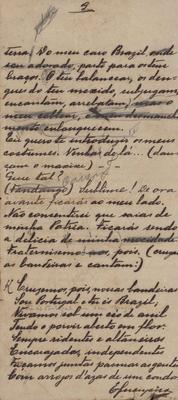 3
terra! Do meu caro Brazil, onde
sou adorado, parto para os teus
braços. O teu balancear, os den-
gues do teu mexido, subjugam,
encantam, arrebatam,
enlouquecem.
Eu quero te introduzir os meus
costumes. Venha de lá... (dan-
çam o maxixe)
Que tal?
(Fandango) Sublime! De ora
avante ficarás ao meu lado.
Não consentirei que saias de
minha Patria. Ficarás sendo
a delicia de minha mocidade
Fraternisemo-nos, pois, (cruzam
as bandeiras e cantam:)
Cruzemos, pois, nossas bandeiras
Sou Portugal e tu és Brazil,
Vivamos sob um céo de anil
Sendo o porvir aberto em flor.
Sempre ridentes e altaneiros
Encorajados, independentes
Façamos juntos pasmar as gentes
Com arrojos d'azas de um condor